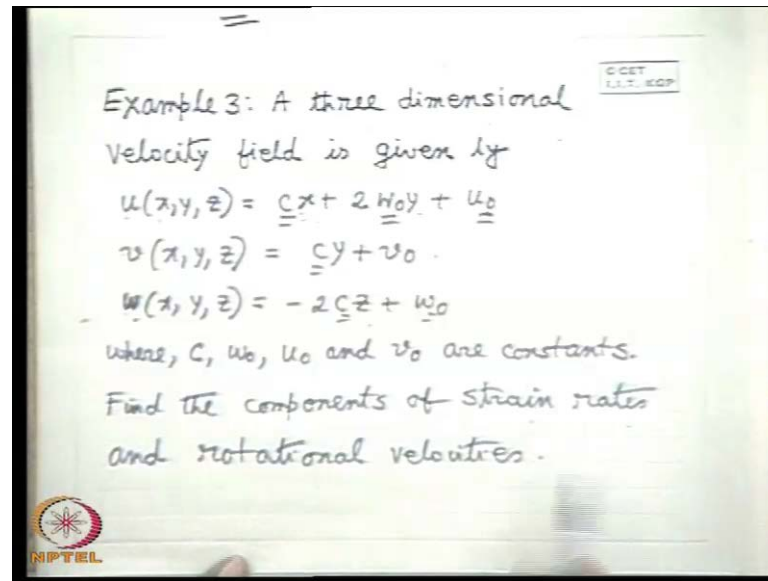 C CET
I.I.T. KGP
Example 3: A three dimensional
velocity field is given by
u(x,y,z) = cx + 2 w₀y + u₀
v(x,y,z) = cy + v₀
w(x,y,z) = - 2cz + w₀
where, c, w₀, u₀ and v₀ are constants.
Find the components of strain rates
and rotational velocities.
NPTEL